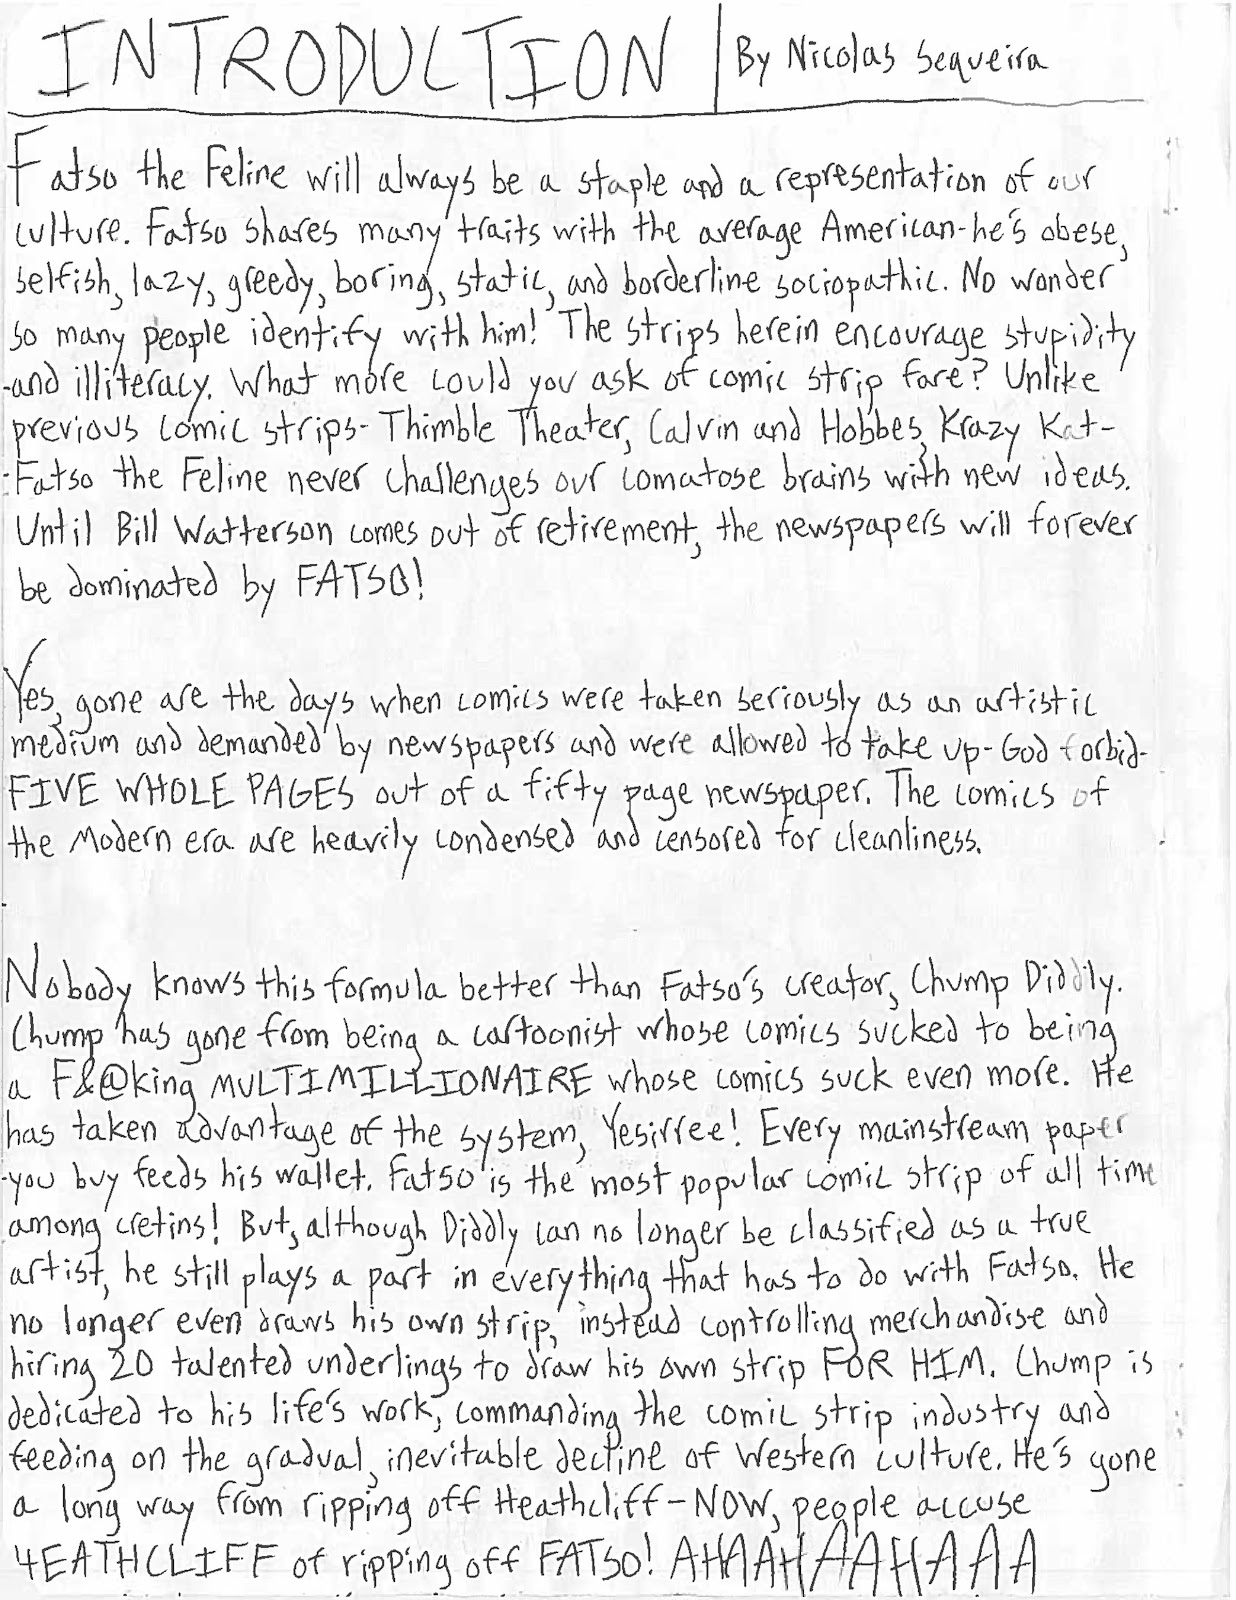 INTRODUCTION | By Nicolas Sequeira
Fatso the Feline will always be a staple and a representation of our
culture. Fatso shares many traits with the average American-he's obese,
selfish, lazy, greedy, boring, static, and borderline sociopathic. No wonder
so many people identify with him! The strips herein encourage stupidity
and illiteracy. What more could you ask of comic strip fare? Unlike
previous comic strips- Thimble Theater, Calvin and Hobbes, Krazy Kat-
Fatso the Feline never challenges our comatose brains with new ideas.
Until Bill Watterson comes out of retirement, the newspapers will forever
be dominated by FATSO!
Yes, gone are the days when comics were taken seriously as an artistic
medium and demanded by newspapers and were allowed to take up-God forbid-
FIVE WHOLE PAGES out of a fifty page newspaper. The comics of
the Modern era are heavily condensed and censored for cleanliness.
Nobody knows this formula better than Fatso's creator, Chump Diddly.
Chump has gone from being a cartoonist whose comics sucked to being
a F&@king MULTIMILLIONAIRE whose comics suck even more. He
has taken advantage of the system, Yesirree! Every mainstream paper
you buy feeds his wallet. Fatso is the most popular comic strip of all time
among cretins! But, although Diddly can no longer be classified as a true
artist, he still plays a part in everything that has to do with Fatso. He
no longer even draws his own strip, instead controlling merchandise and
hiring 20 talented underlings to draw his own strip FOR HIM. Chump is
dedicated to his life's work, commanding the comic strip industry and
feeding on the gradual, inevitable decline of Western culture. He's gone
a long way from ripping off Heathcliff-NOW, people accuse
HEATHCLIFF of ripping off FATSO! AHAAHAAAHAAA